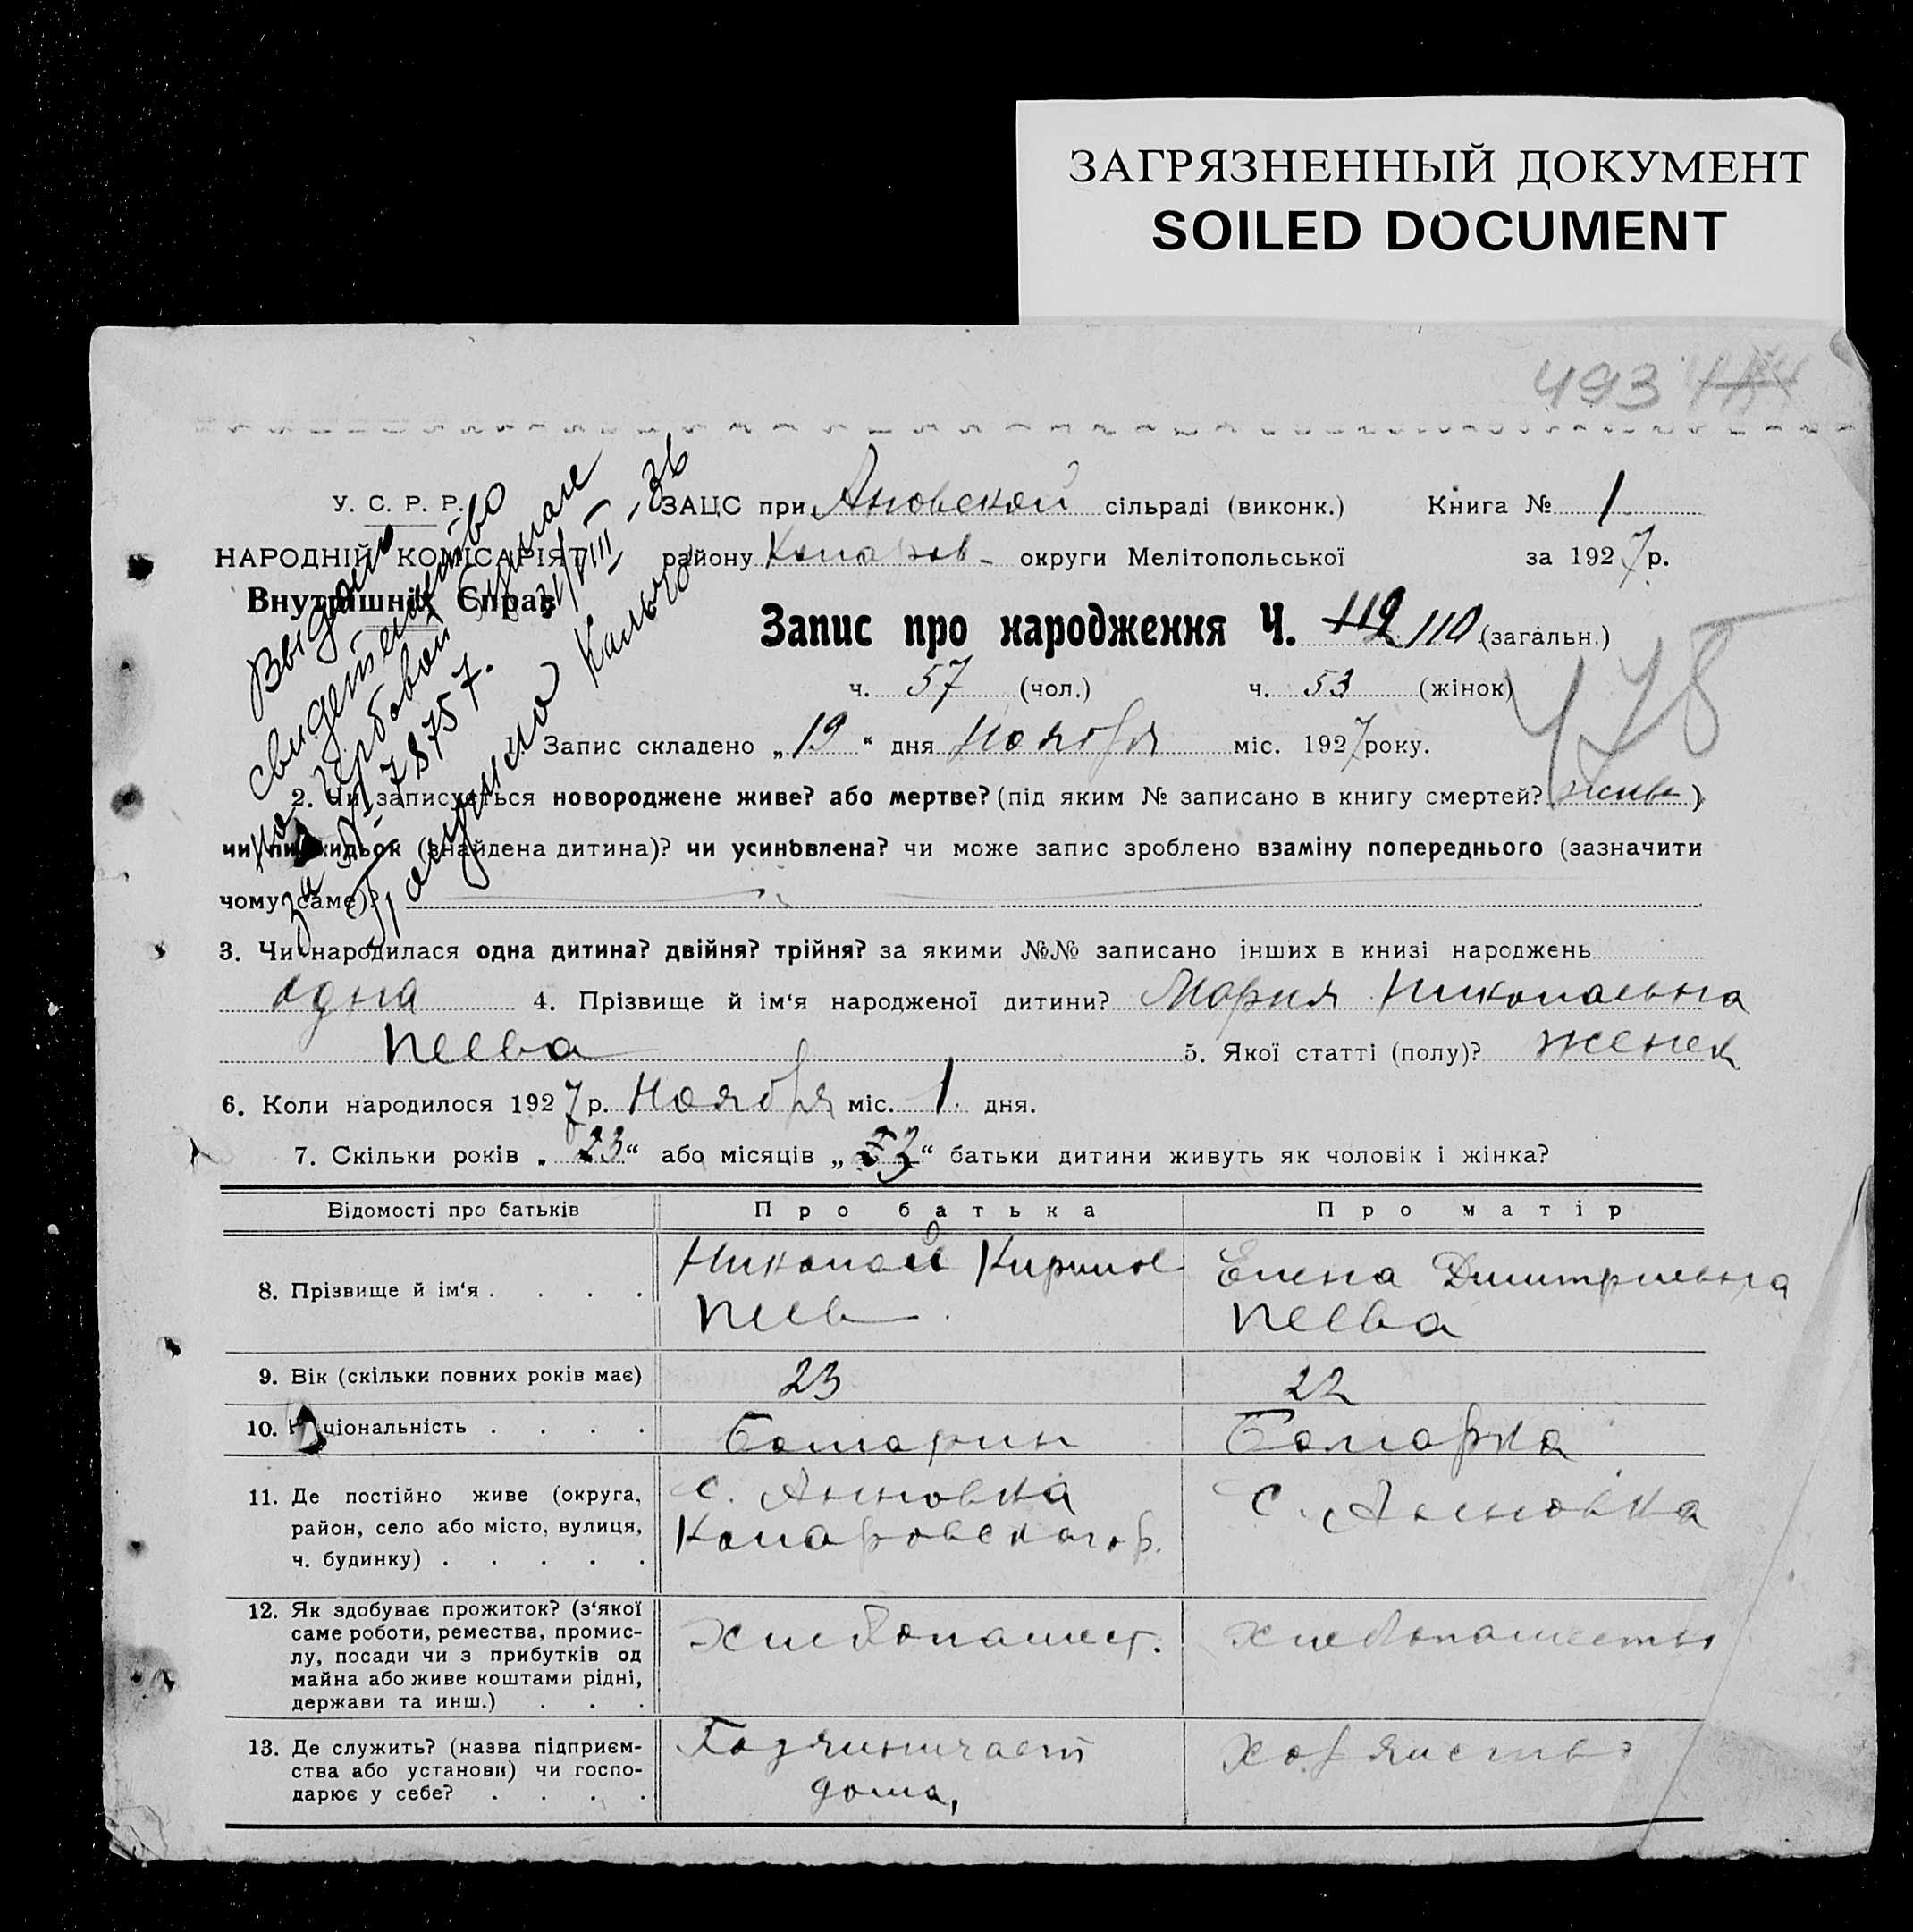 ЗАГРЯЗНЕННЫЙ ДОКУМЕНТ
SOILED DOCUMENT
493
У. С. Р. Р.
НАРОДНІЙ КОМІСАРІЯТ
Внутрішніх Справ
Выдано
свидетельство
на гербовой бумаге
за № 78757.
31/VIII-36
ЗАЦС при Ановской сільраді (виконк.) Книга № 1
району Комаров- округи Мелітопольської за 1927 р.
Запис про народження Ч. 112 110 (загальн.)
ч. 57 (чол.) ч. 53 (жінок)
178
1. Запис складено „19“ дня ноября міс. 1927 року.
2. Чи записується новороджене живе? або мертве? (під яким № записано в книгу смертей? живе)
чи підкидьок (знайдена дитина)? чи усиновлена? чи може запис зроблено взаміну попереднього (зазначити
чому саме)?
3. Чи народилася одна дитина? двійня? трійня? за якими №№ записано інших в книзі народжень
одна 4. Прізвище й ім‘я народженої дитини? Мария Николаевна
Пеева 5. Якої статті (полу)? женск
6. Коли народилося 1927 р. Ноября міс. 1. дня.
7. Скільки років „23“ або місяців „23“ батьки дитини живуть як чоловік і жінка?
Відомості про батьків Про батька Про матір
8. Прізвище й ім‘я . . . . Николай Кирилов Елена Дмитриевна
Пеев Пеева
9. Вік (скільки повних років має) 23 22
10. Національність . . . . Болгарин Болгарка
11. Де постійно живе (округа, с. Анновка с. Анновка
район, село або місто, вулиця, Комаровского р.
ч. будинку) . . . . .
12. Як здобуває прожиток? (з‘якої
саме роботи, ремества, промис- хлебопашест. хлебопашество
лу, посади чи з прибутків од
майна або живе коштами рідні,
держави та инш.) . . .
13. Де служить? (назва підприєм- Хозяиничает хозяйство
ства або установи) чи госпо- дома,
дарює у себе? . . . .